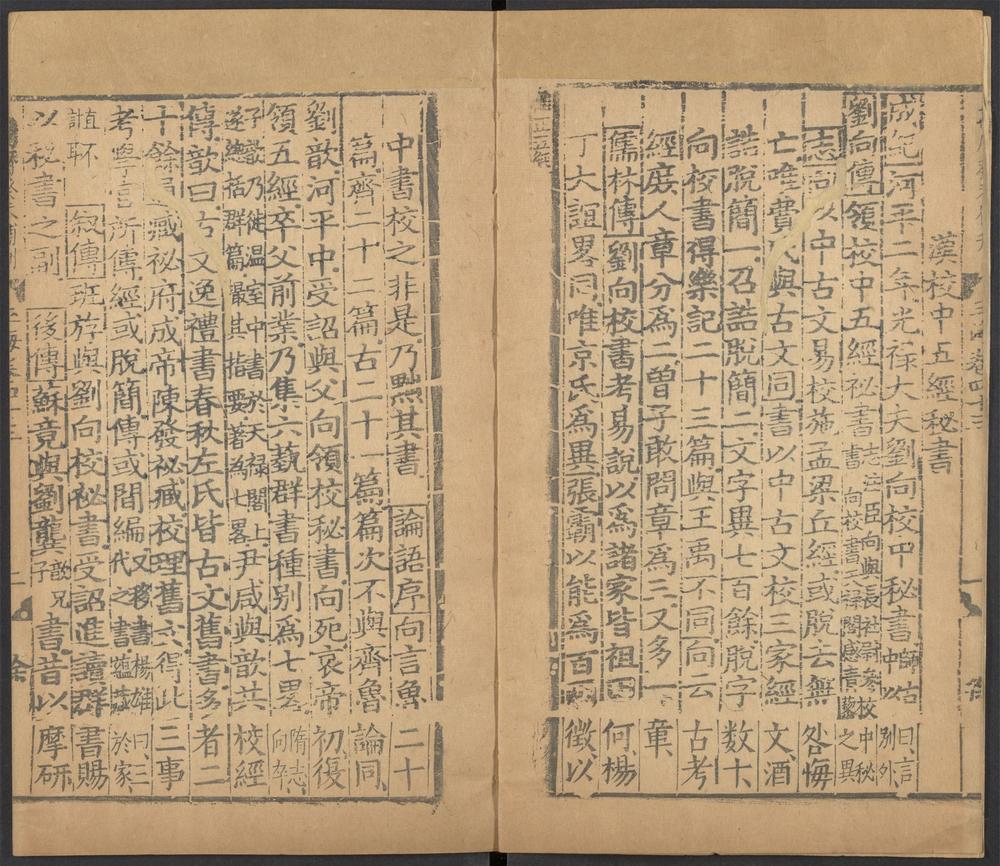 漢校中五經秘書
成紀河平二年光祿大夫劉向校中秘書師古曰言中以別外
劉向傳領校中五經祕書志注臣向與長社尉參校中秘書 向校書天祿閣感青藜之異
志向以中古文易校施孟梁丘經或脫去無咎悔
亡唯費氏與古文同書以中古文校三家經文酒
誥脫簡一召誥脫簡二文字異七百餘脫字數十
向校書得樂記二十三篇與王禹不同向云古考
經庶人章分爲二曾子敢問章爲三又多一章
儒林傳劉向校書考易說以爲諸家皆祖田何楊
丁大誼畧同唯京氏爲異張霸以能爲百兩徵以
中書校之非是乃黜其書 論語序向言魯二十
篇齊二十二篇古二十一篇篇次不與齊魯論同
劉歆河平中受詔與父向領校秘書向死哀帝初復
領五經卒父前業乃集六藝群書種別爲七畧隋志向卒
子歆乃徙溫室中書於天祿閣上遂總括群篇撮其指要著為七畧尹咸與歆共校經
傳歆曰古文逸禮書春秋左氏皆古文舊書多者二
十餘通臧祕府成帝陳發祕臧校理舊文得此三事
考學官所傳經或脫簡傳或間編又移書楊雄曰三代之書蘊藏於家
直耴 敘傳班斿與劉向校秘書受詔進讀群書賜
以秘書之副 後傳蘇竟與劉龔歆兄子書昔以摩研